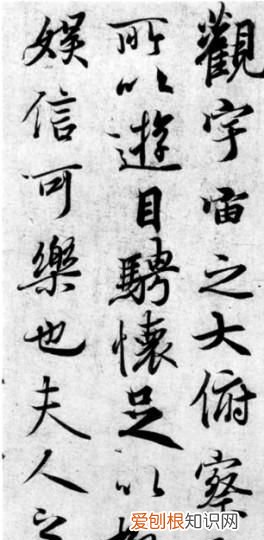 觀宇宙之大俯察
所以遊目騁懷足以
娛信可樂也夫人之
爱刨根知识网